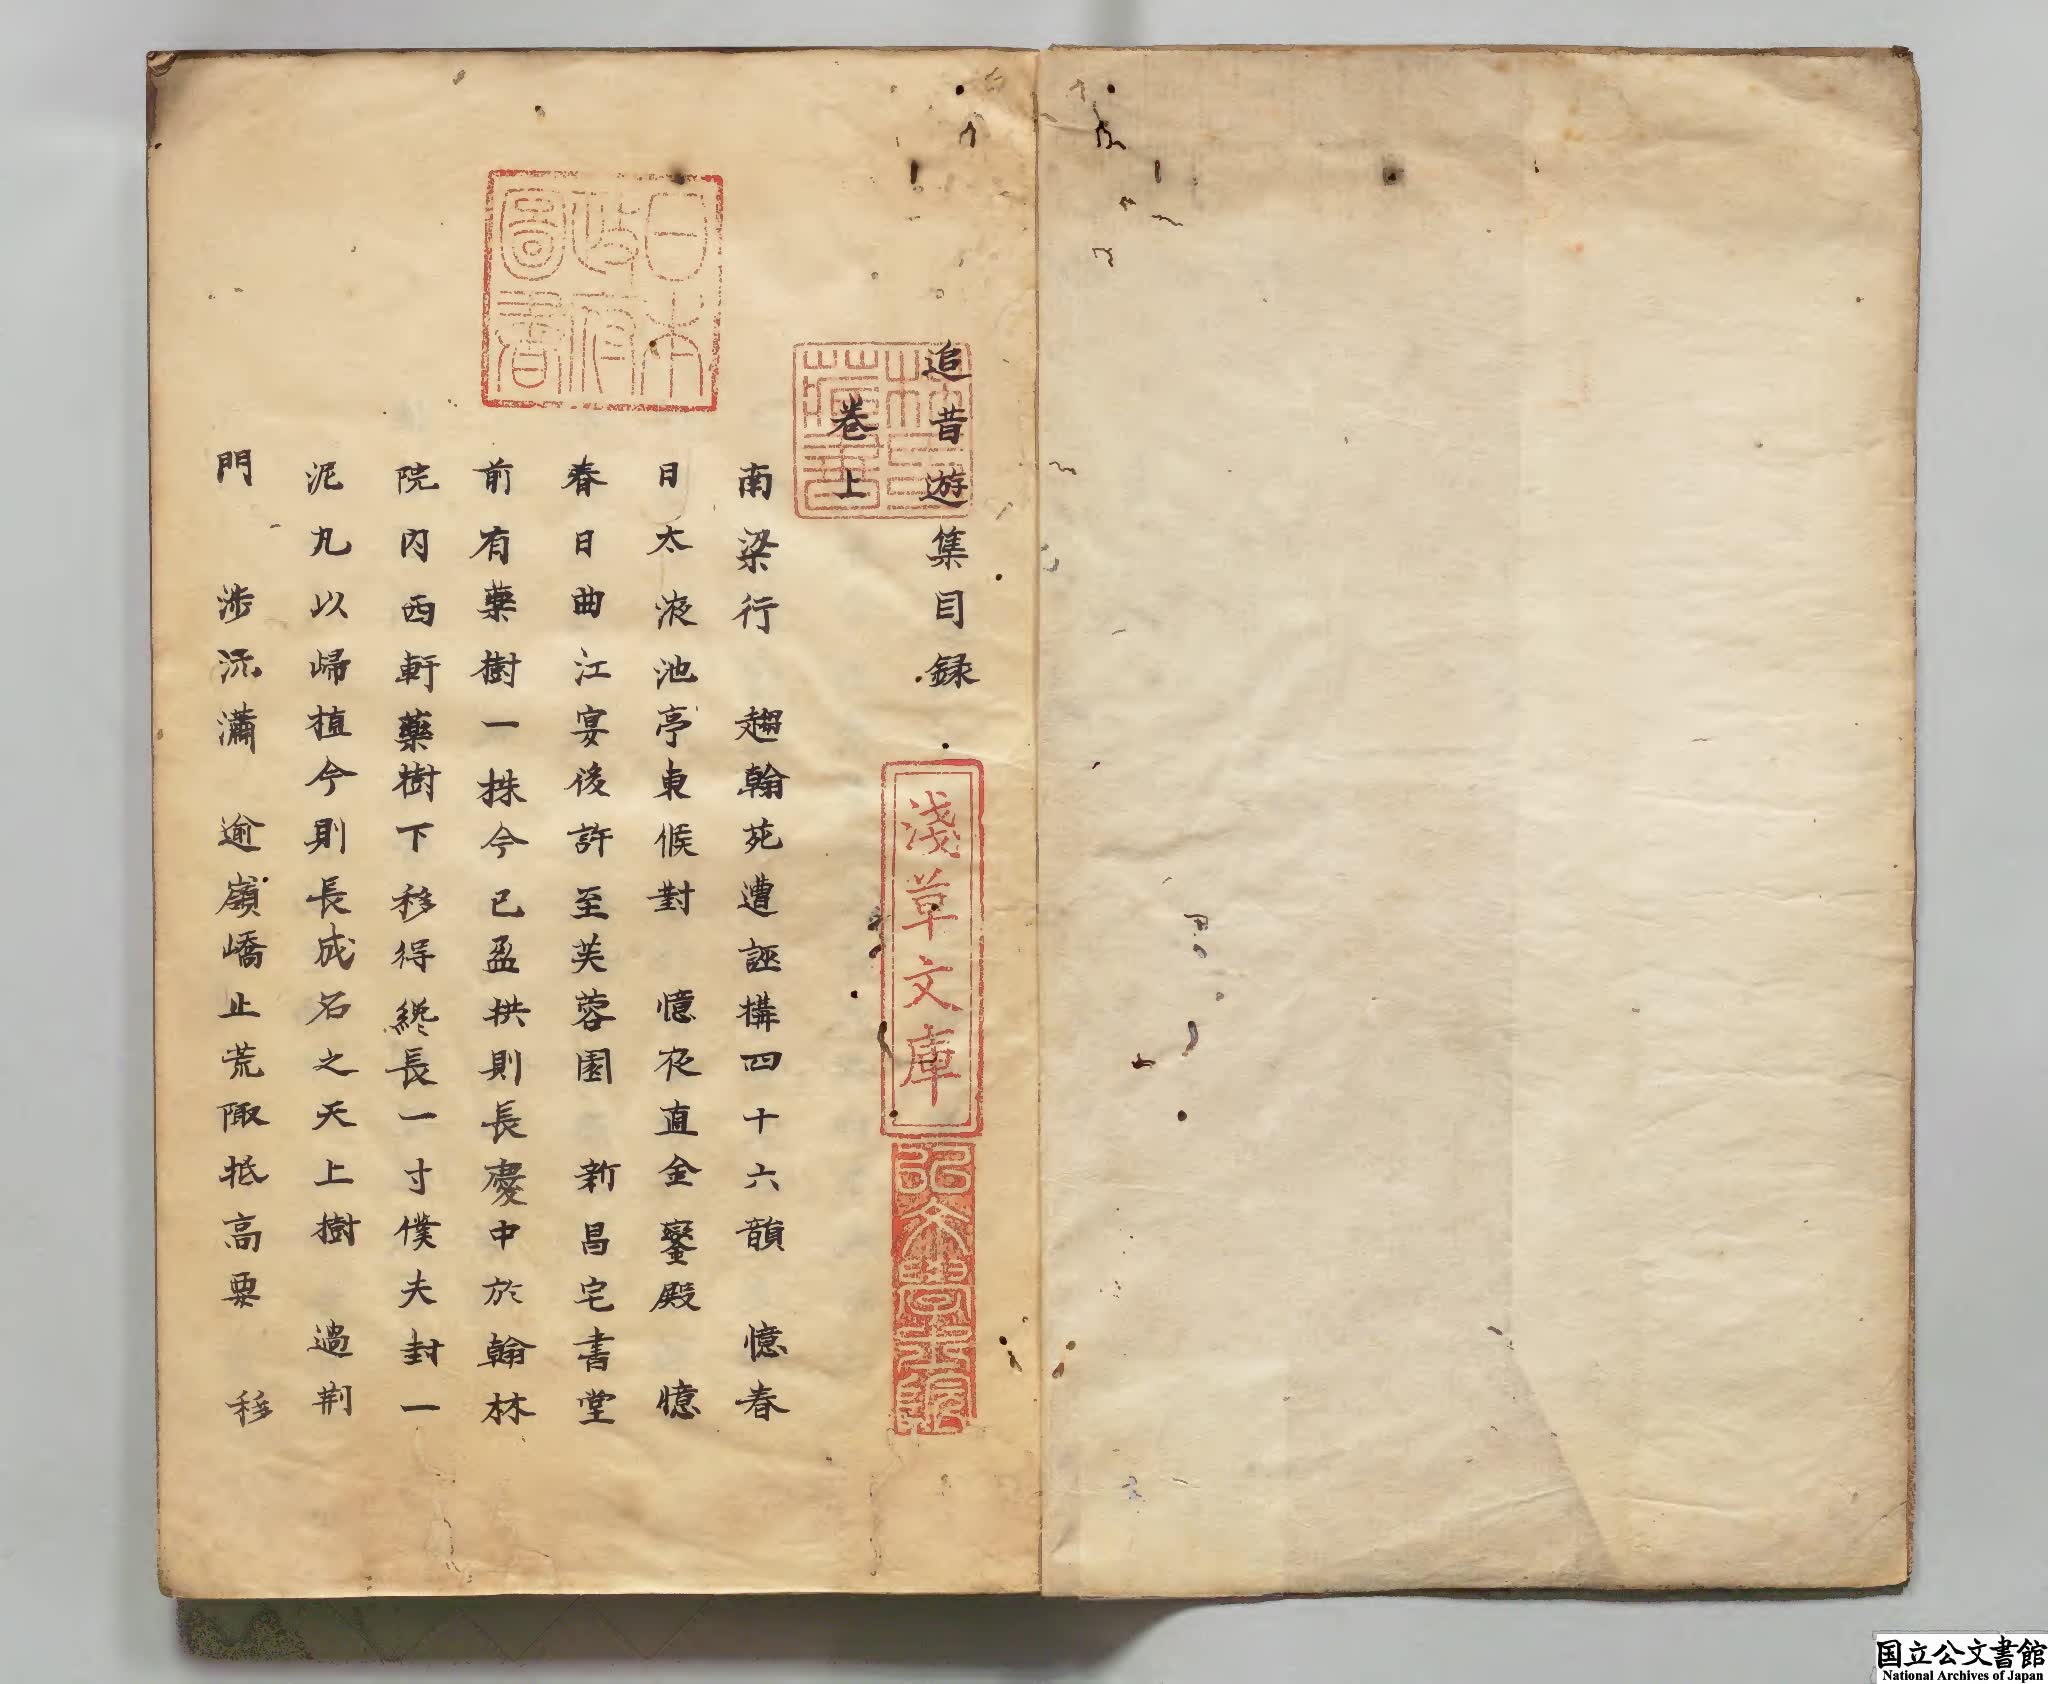 追昔遊集目録
卷上
南梁行　趨翰苑遭誣構四十六韻　憶春
日太液池亭東候對　憶夜直金鑾殿　憶
春日曲江宴後許至芙蓉園　新昌宅書堂
前有藥樹一株今已盈拱則長慶中於翰林
院內西軒藥樹下移得纔長一寸僕夫封一
泥丸以歸植今則長成名之天上樹　過荆
門　涉沅瀟　逾嶺嶠止荒陬抵高要　移
日本政府圖書
林氏藏書
淺草文庫
国立公文書館
National Archives of Japan